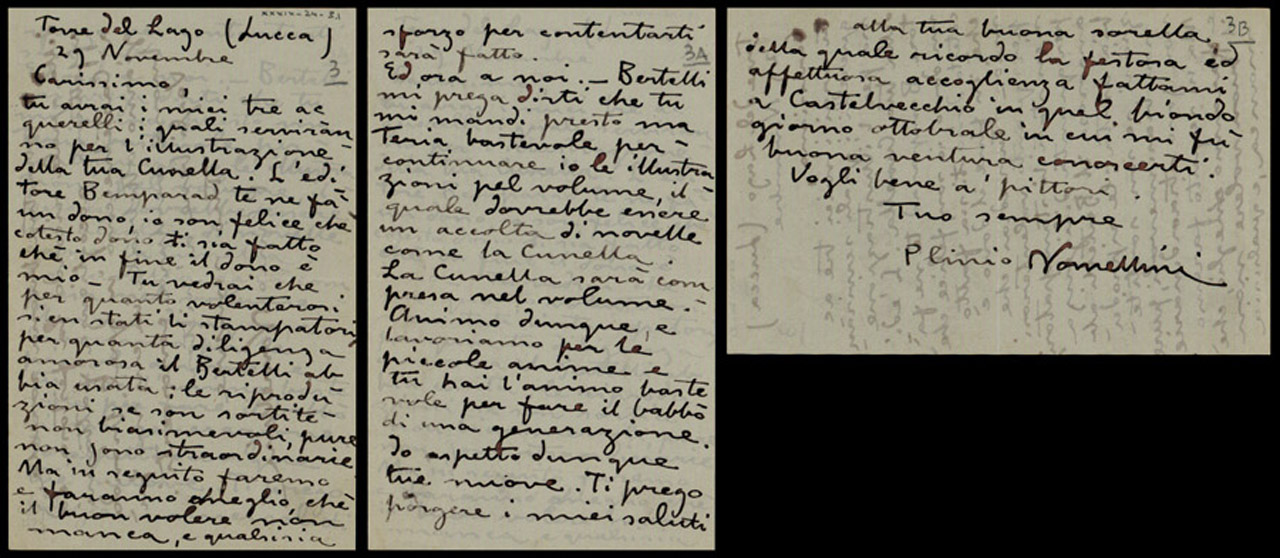 XXXIX-24-31
Torre del Lago (Lucca)
29 Novembre
3
Carissimo,
tu avrai i miei tre ac
querelli i quali serviran
no per l'illustrazione
della tua Cunella. L'edi
tore Bemporad te ne fà
un dono, io son felice che
cotesto dono ti sia fatto
chè in fine il dono è
mio – Tu vedrai che
per quanto volenterosi
sien stati li stampatori
per quanta diligenza
amorosa il Bertelli ab
bia usata: le riprodu
zioni se son sortite
non biasimevoli, pure
non sono straordinarie
Ma in seguito faremo
e faranno meglio, chè
il buon volere non
manca, e qualsisia
sforzo per contentarti
sarà fatto.
3A
Ed ora a noi. – Bertelli
mi prega dirti che tu
mi mandi presto ma
teria bastevole per
continuare io le illustra
zioni pel volume, il
quale dovrebbe essere
un accolta di novelle
come la Cunella.
La Cunella sarà com
presa nel volume. –
Animo dunque, e
lavoriamo per le
piccole anime e
tu hai l'animo baste
vole per fare il babbo
di una generazione.
Io aspetto dunque
tue nuove. Ti prego
porgere i miei saluti
3B
alla tua buona sorella
della quale ricordo la festosa ed
affettuosa accoglienza fattami
a Castelvecchio in quel biondo
giorno ottobrale in cui mi fù
buona ventura conoscerti.
Vogli bene a' pittori
Tuo sempre
Plinio Nomellini